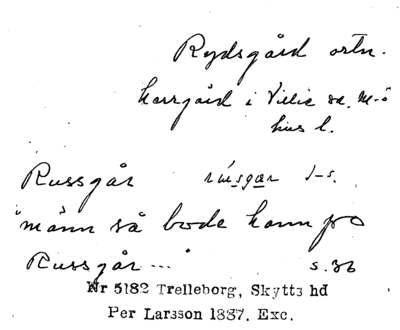 Rydsgård ortn.
herrgård i Villie sn. M-ö
hus l.
Russgår rúsgar s-s.
"männ så bode hann po
Russgår ..." s.36
Nr 5182 Trelleborg, Skytts hd
Per Larsson 1887. Exc.